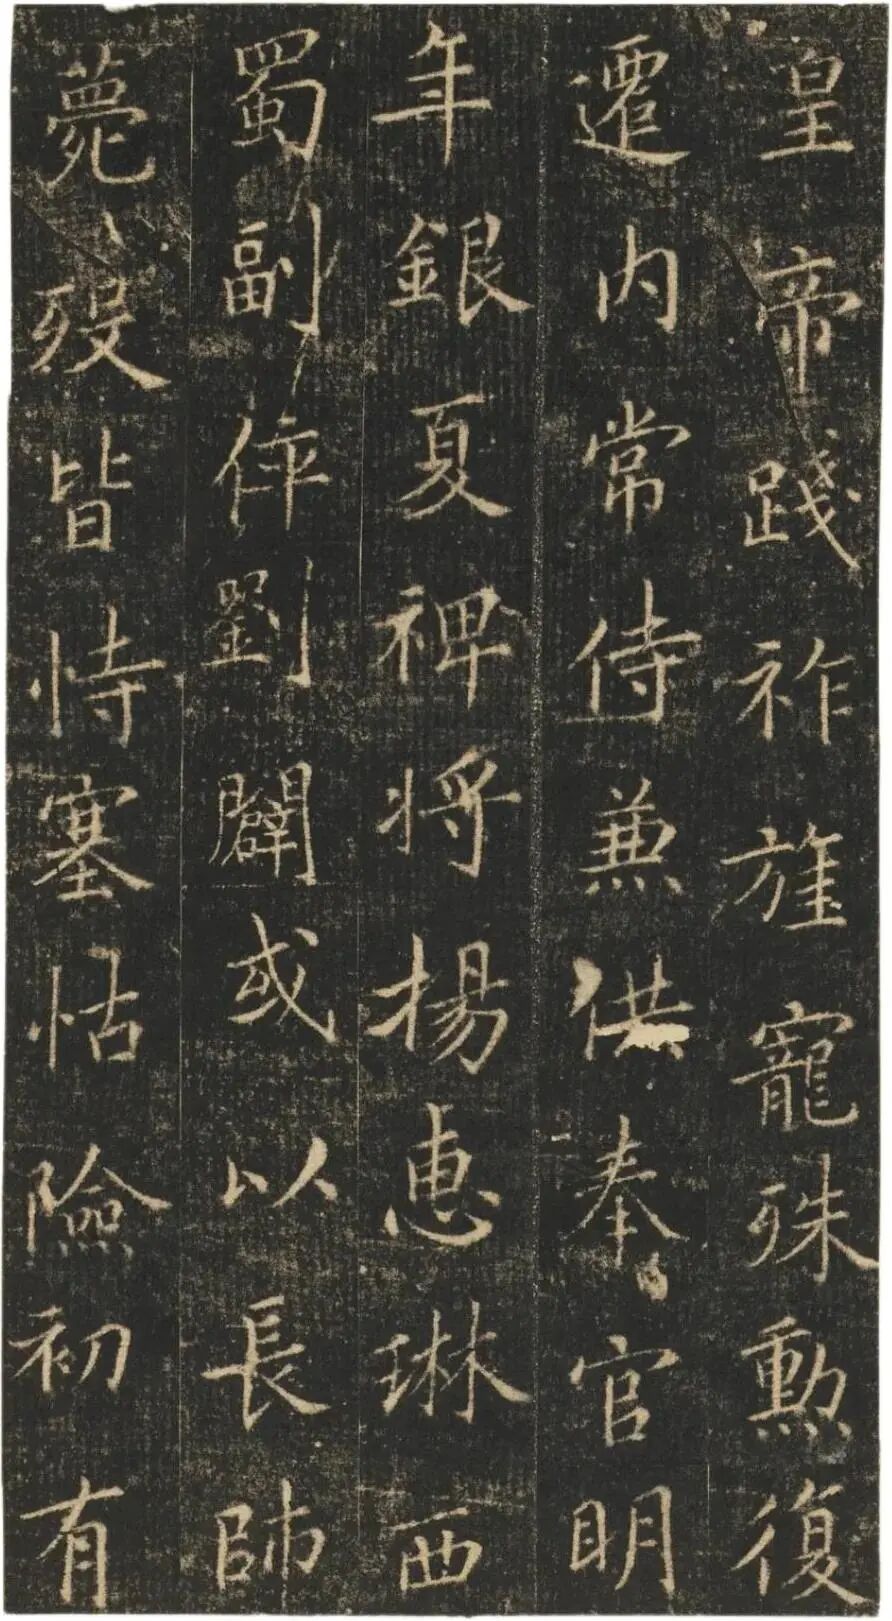 皇帝踐祚旌寵殊勲復
遷内常侍兼供奉官明
年銀夏裨將楊惠琳西
蜀副倅劉闢或以長帥
薨殁皆恃塞怙險初有